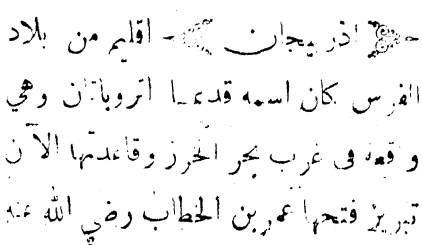 ﴿ اذربيجان ﴾ - اقليم من بلاد
الفرس كان اسمه قديما اتروباتان وهي
واقعه فى غرب بحر الخرز وقاعدتها الآن
تبريز فتحها عمر بن الخطاب رضي الله عنه